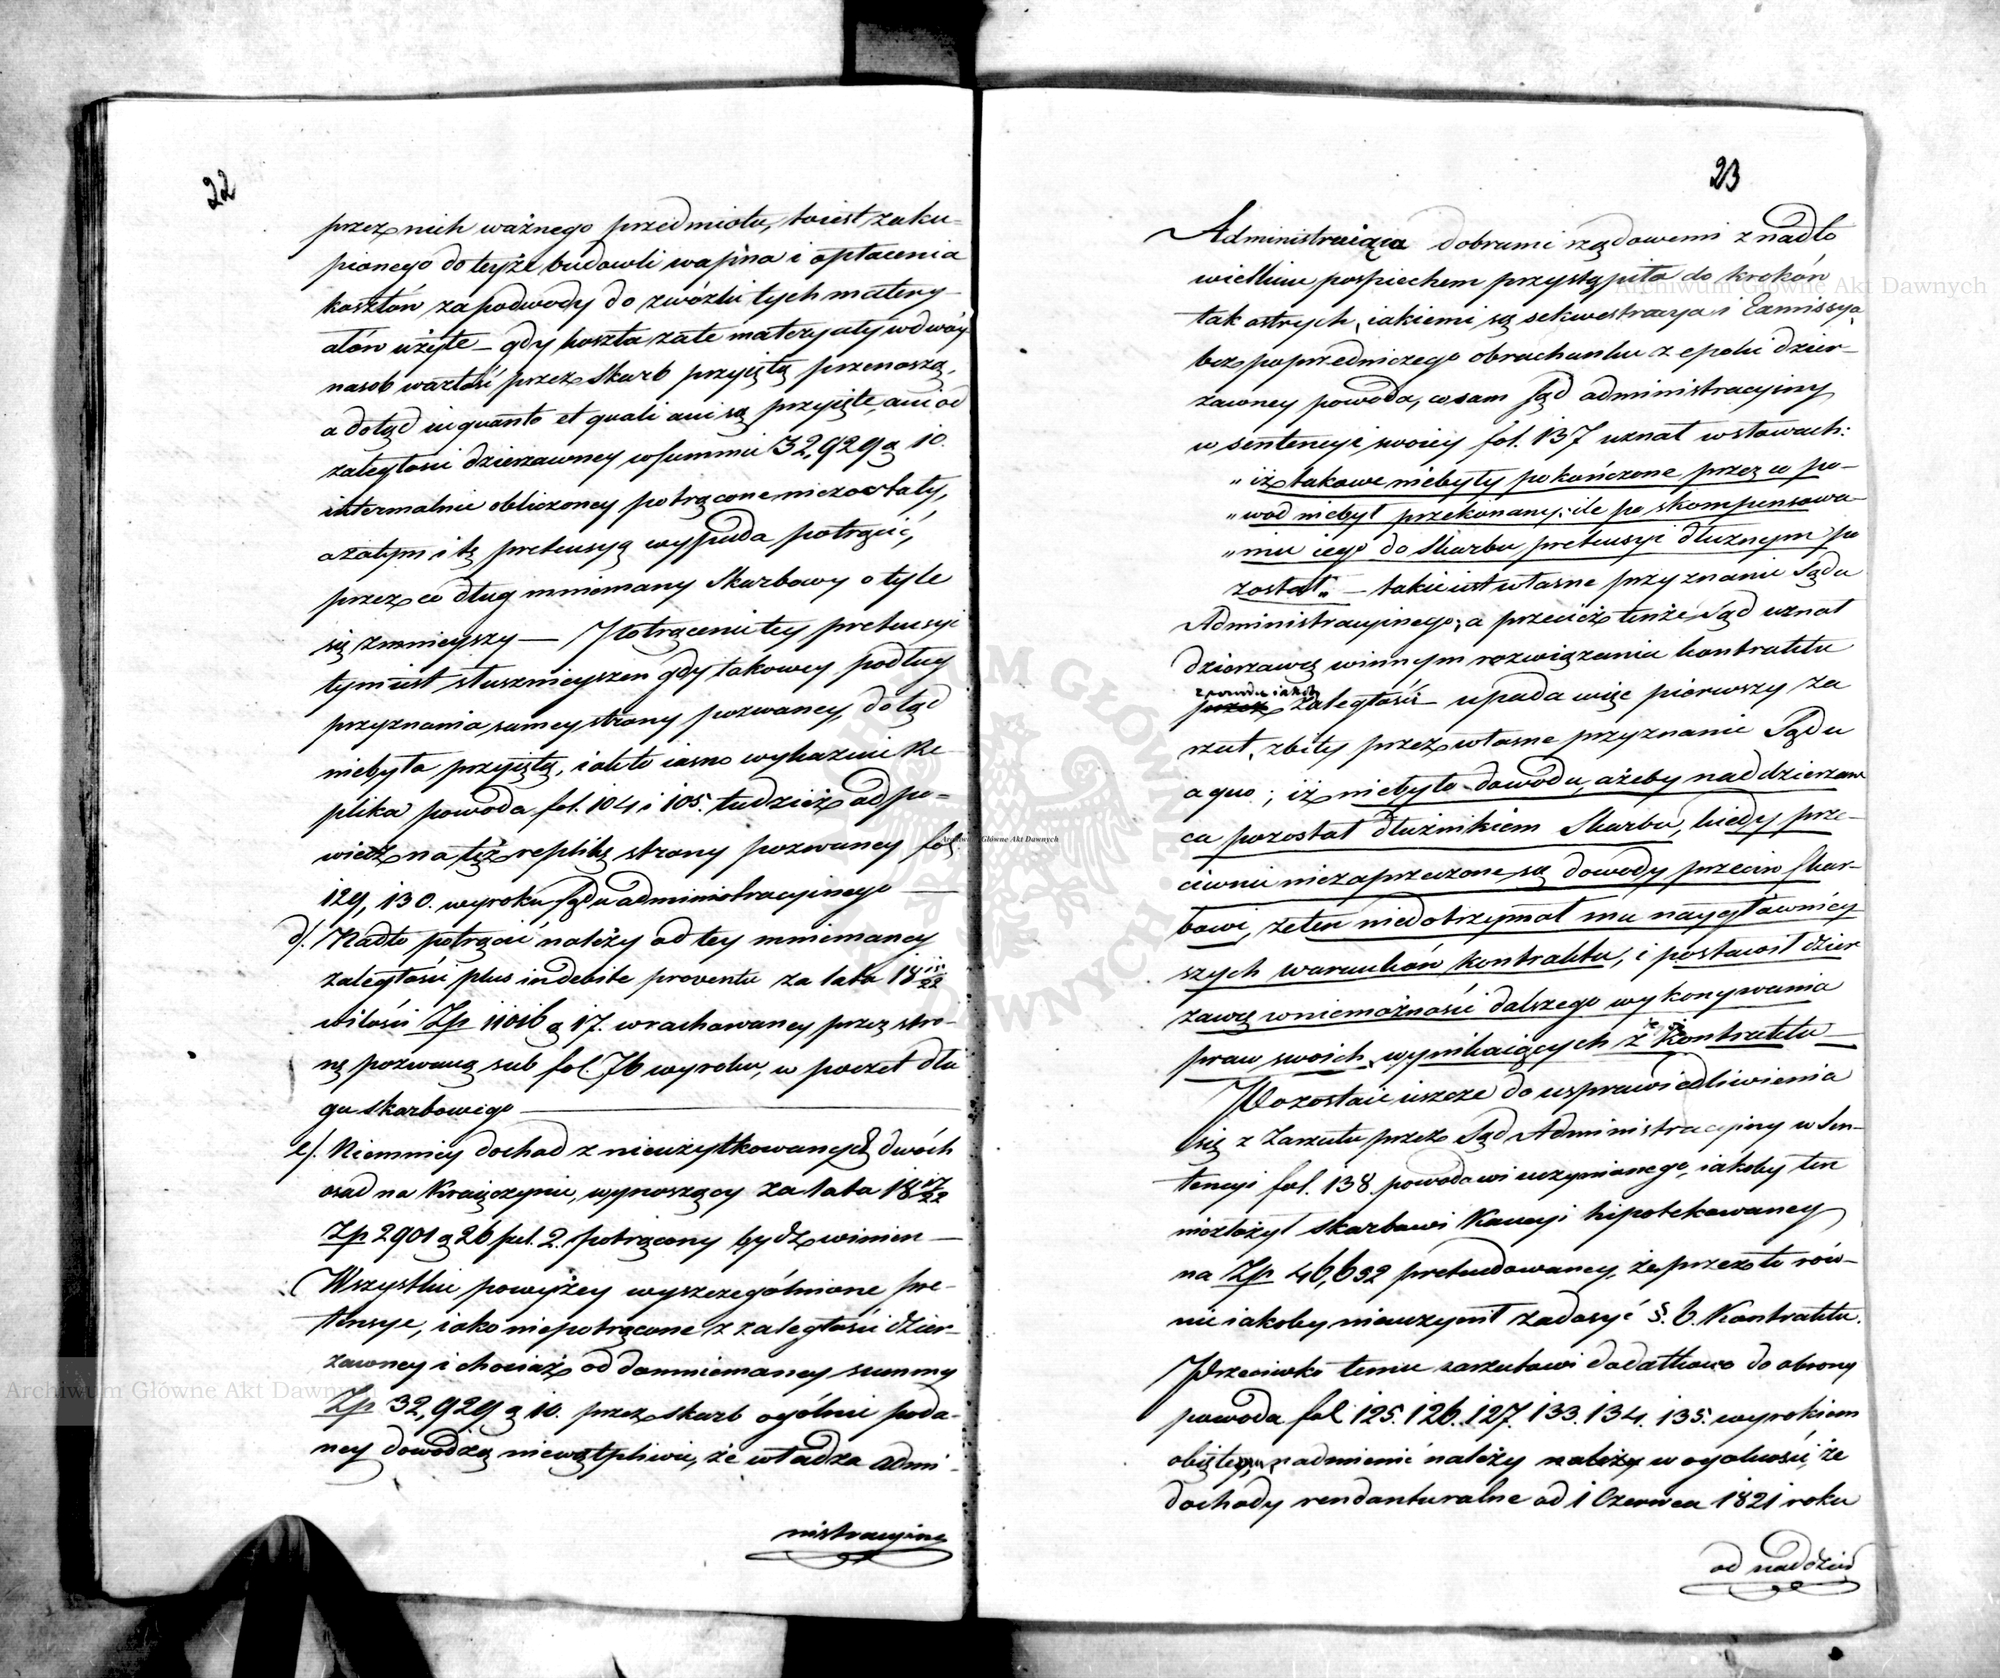 22
przez nich ważnego przedmiotu, toiest zaku-
pionego do teyże budowli wapna i opłacenia
kosztów za podwody do zwózki tych matery-
ałów użyte – gdy koszta za te materyały w dwóy
nasob wartość przez Skarb przyiętą przenoszą,
a dotąd in quanto et quali ani są przyięte, ani od
zaległości dzierzawney w summie 32,929 g 10.
intermalnie obliczoney potrącone niezostały,
a zatym i tę pretensyą wypada potrącić,
przez co dług mniemany Skarbowy o tyle
się zmnieyszy — Potrącenie tey pretensyi
tym iest słusznieyszem gdy takowey podług
przyznania samey strony pozwaney, dotąd
niebyła przyiętą, iak to iasno wykazuie Re-
plika powoda fol. 104 i 105. tudzież odpo-
wiedź na tęż replikę strony pozwaney fol.
129, 130. wyroku Sądu administracyinego —
d/. Nadto potrącić należy od tey mniemaney
zaległości plus indebite proventu za lata 18
w ilości Zp 11016 g 17. wrachowaney przez stro-
nę pozwaną sub fol. 76 wyroku, w poczet dłu
gu skarbowego —
e/. Niemniey dochod z nieużytkowanych dwóch
osad na Kraięczynie, wynoszący za lata 18 17/22
Zp 2901 g 26 fel. 2. potrącony bydź winien —
Wszystkie powyżey wyszczególnione pre-
tensye, iako niepotrącone z zaległości dzier-
zawney i chociaż od domniemaney summy
Zp 32,929 g 10. przez skarb ogólnie poda-
ney dowodzą niewątpliwie, że władza admi-
nistracyina
23
Administruiąca dobrami rządowemi z nadto
wielkim pospiechem przystąpiła do kroków
tak ostrych, iakiemi są sekwestracya i Exmissya,
bez poprzedniczego obrachunku z epoki dzier-
zawney powoda, co sam Sąd administracyiny
w sentencyi swoiey fol. 137 uznał w słowach:
„iż takowe niebyły pokończone przez co po-
„wod niebył przekonany; ile po skompensowa-
„niu iego do Skarbu pretensyi dłużnym po
został„ — takie iest własne przyznanie Sądu
Administracyinego; a przecież tenże Sąd uznał
dzierzawcę winnym rozwiązania kontraktu
z powodu iakoby
przez zaległość – upada więc pierwszy za
rzut, zbity przez własne przyznanie Sądu
a quo; iż niebyło dowodu, ażeby nad dzierzaw
ca pozostał dłużnikiem Skarbu, kiedy prze-
ciwnie niezaprzeczone są dowody przeciw Skar-
bowi, że ten niedotrzymał mu naygłownicy
szych warunków kontraktu, i postawił dzier
zawcę w niemożności dalszego wykonywania
praw swoich, wynikaiących z Kontraktu —
Pozostaie ieszcze do usprawiedliwienia
się z Zarzutu przez Sąd Administracyiny w Sen-
tencyi fol. 138 powodowi uczynionego, iakoby ten
niezłożył Skarbowi Kaucyi hipotekowaney
na Zp 46,692 pretendowaney, że przez to rów-
nie iakoby nieuczynił zadosyć §. 6. Kontraktu.
Przeciwko temu zarzutowi dodatkowo do obrony
powoda fol 125. 126. 127. 133. 134. 135. wyrokiem
obiętey, nadmienić należy należy w ogolności, że
dochody rendanturalne od 1 Czerwca 1821 roku
od naddzier
Archiwum Główne Akt Dawnych
Archiwum Główne Akt Dawnych
Archiwum Główne Akt Dawnych
ARCHIWUM GŁÓWNE AKT DAWNYCH